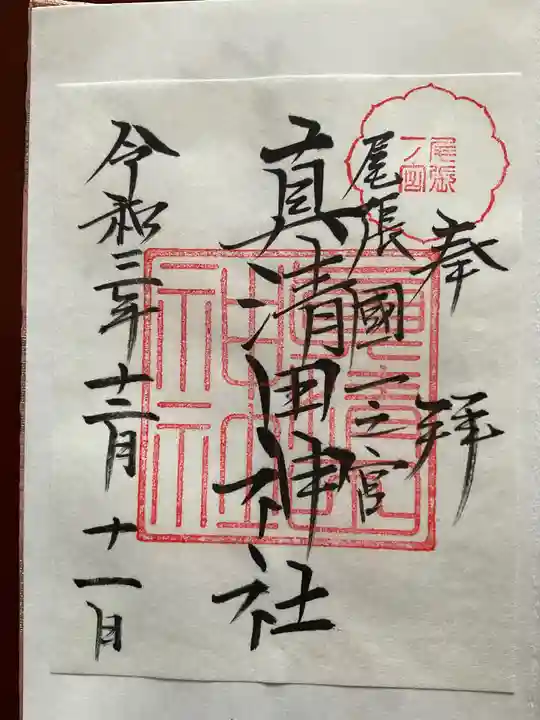 尾張
一ノ宮
奉拝
尾張國一之宮
真清田神社
令和三年十二月十一日